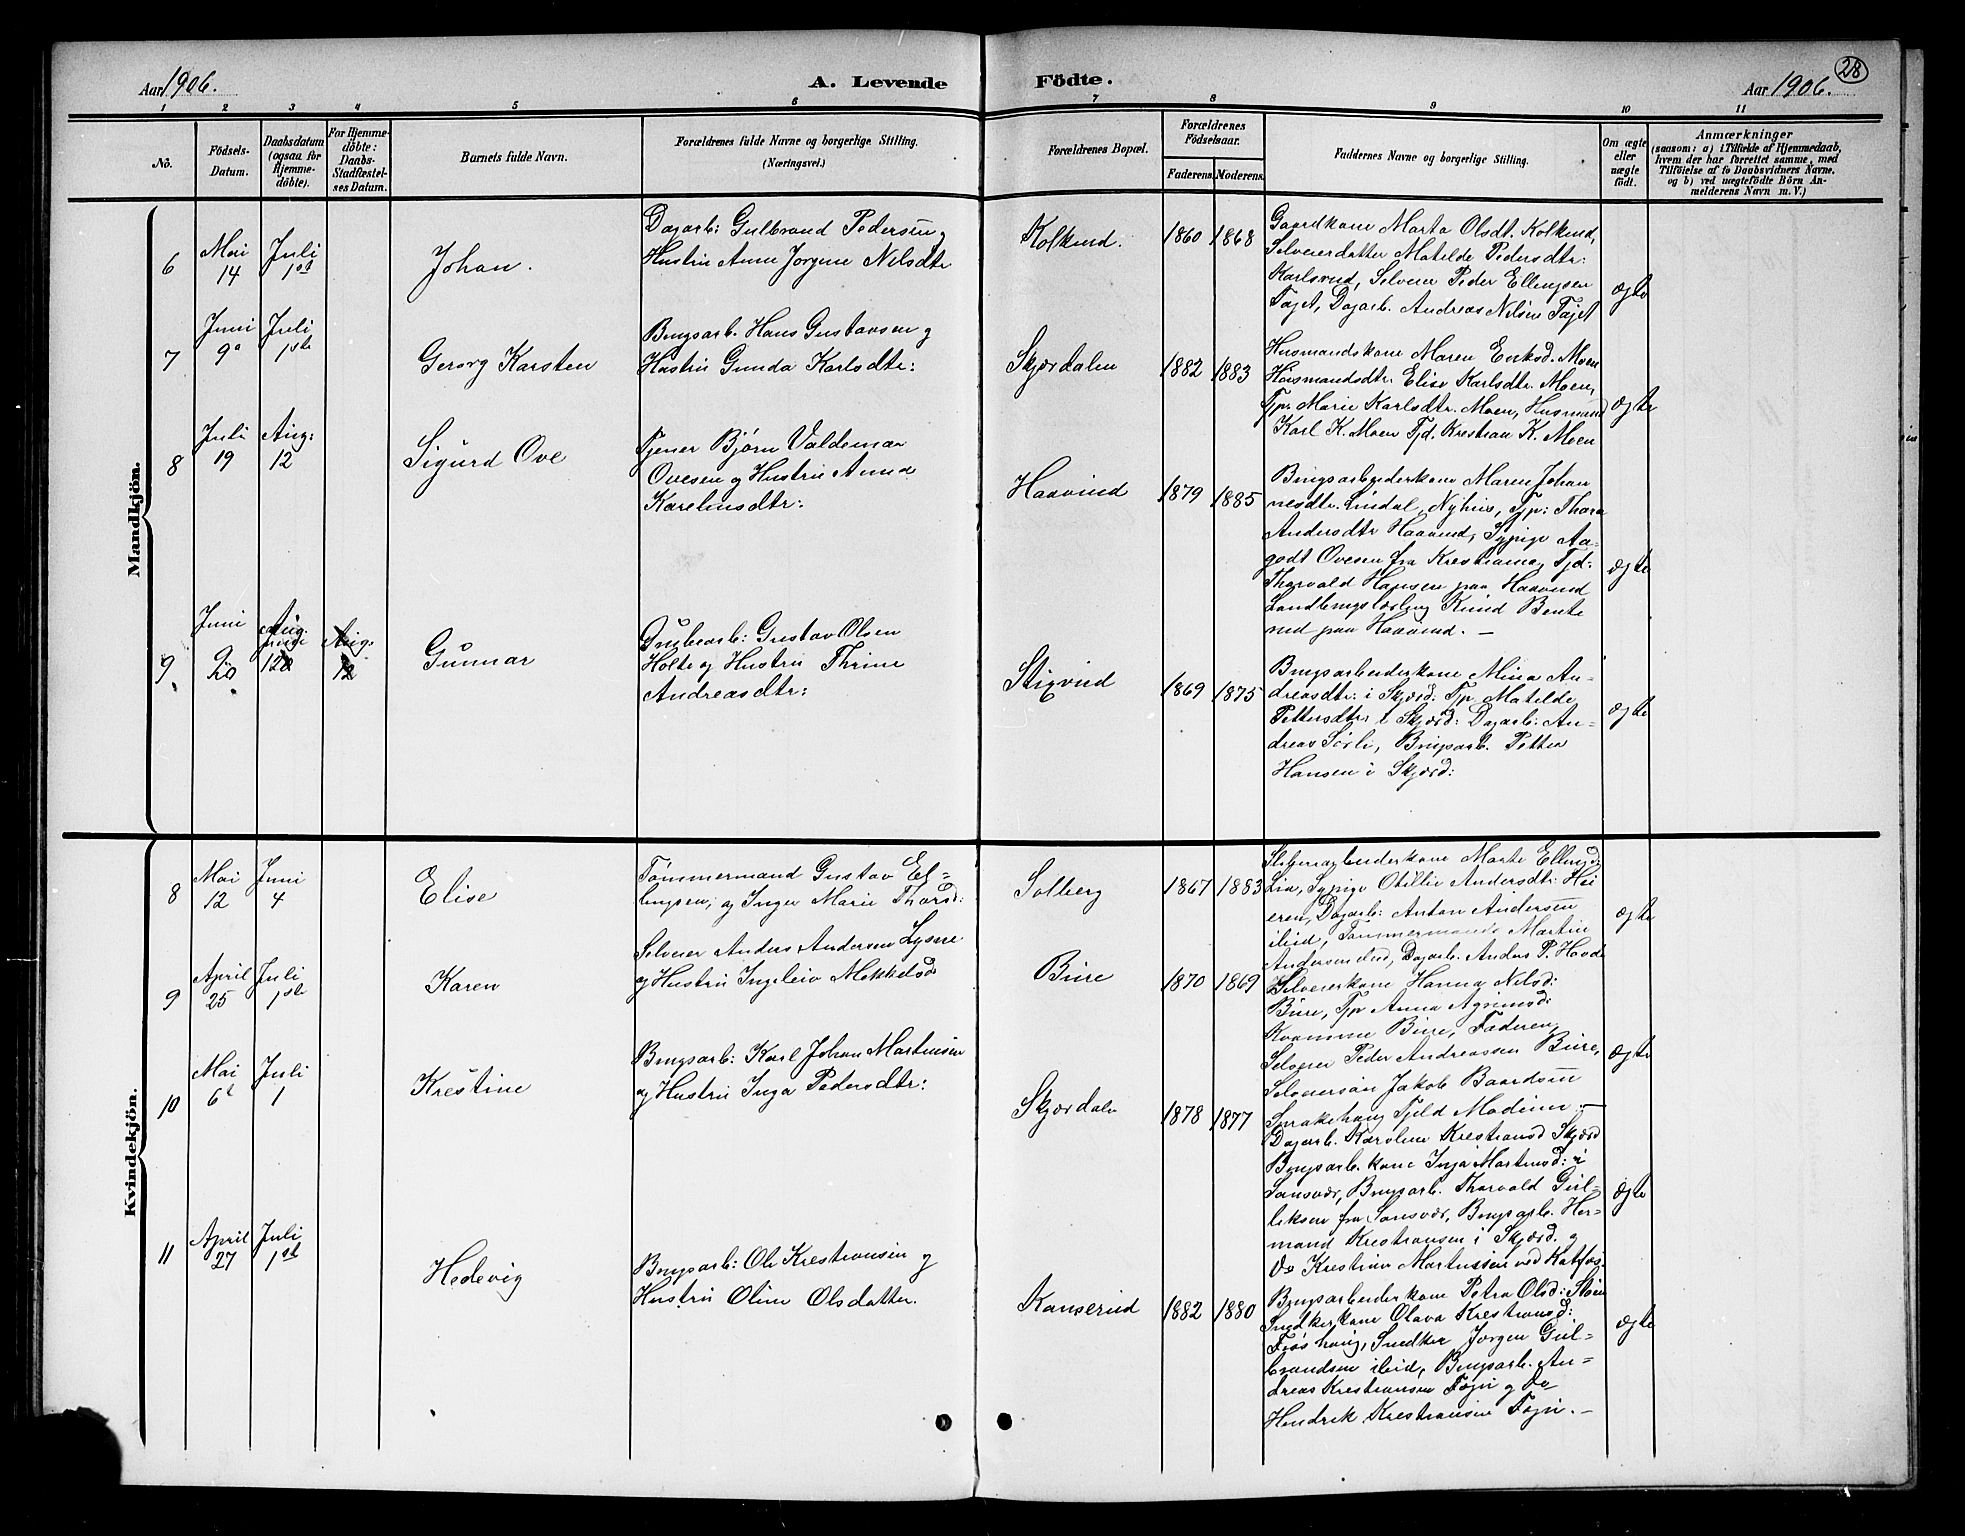 Aar 1906.
A. Levende Födte.
Aar 1906.
28
1 2 3 4 5 6 7 8 9 10 11
No.
Födsels-Datum.
Daabsdatum (ogsaa for Hjemme-döbte).
For Hjemme-döbte: Daabs-Stadfæstel-ses Datum.
Barnets fulde Navn.
Forældrenes fulde Navne og borgerlige Stilling.
(Næringsvei.)
Forældrenes Bopæl.
Forældrenes Födselsaar.
Faderens. Moderens.
Faddernes Navne og borgerlige Stilling.
Om ægte eller uægte födt.
Anmærkninger
(saasom: a) i Tilfælde af Hjemmedaab,
hvem der har forrettet samme, med
Tilföielse af to Daabsvidners Navne,
og b) ved uægtefödte Börn An-
melderens Navn m. V.)
Mandkjön.
6
Mai 14
Juli 1st
Johan.
Dagarb: Gulbrand Pedersen og
Hustru Anne Jorgine Nilsdtr
Kolkind.
1860 1868
Gaardkone Marta Olsdt. Kolkind,
Selveierdatter Matilde Pedersdtr:
Karlsrud, Selveier Peder Ellingsen
Fajet, Dagarb. Andreas Nilsen Fajet
ægte
7
Juni 9
Juli 1ste
Gerorg Karsten
Brugsarb. Hans Gustavsen og
Hustru Gunda Karlsdtr:
Skjærdalen
1882 1883
Husmandskone Maren Eriksd. Moen
Husmandsdtr. Elise Karlsdtr. Moen,
Tjp. Marie Karlsdtr. Moen, Husmand
Karl K. Moen Tjd. Kristian K. Moen
ægte
8
Juli 19
Aug: 12
Sigurd Ove
Tjener Björn Valdemar
Ovesen og Hustru Anna
Karelinsdtr:
Haavind
1879 1885
Brugsarbeiderkone Maren Johan
nesdtr. Lindal, Nyhus, Tjp: Thora
Andersdtr Haavind, Sypige Aa-
godt Ovesen fra Kristiania, Tjd.
Thorvald Hansen paa Haavind
Landbrugslærling Knud Bente
rud paa Haavind. —
ægte
9
Juni 20
Aug. 12
Aug. 12
Gunnar
Grubearb: Gustav Olsen
Holte og Hustru Thrine
Andreasdtr:
Stixrud
1869 1875
Brugsarbeiderkone Mina An-
dreasdtr: i Skjærd: Tjp. Matilde
Pettersdtr i Skjærd: Dagarb: An-
dreas Sörli, Brugsarb. Petter
Hansen i Skjærd:
ægte
Kvindekjön.
8
Mai 12
Juni 4
Elise
Tömmermand Gustav El-
lingsen, og Inger Marie Thorsd:
Solberg
1867 1883
Sliperiarbeiderkone Marte Ellingsd
Lia, Sypige Otillie Andersdtr: Hei
eren, Dagarb: Anton Andersen
ibid, Tömmermand Martin
Andersen ibid, Dagarb. Anders P. Hovde
ægte
9
April 25
Juli 1ste
Karen
Selveier Anders Andersen Lysne
og Hustru Ingeleiv Mekkelsd:
Bure
1870 1869
Selveierkone Hanna Nilsd:
Bure, Tjp Anna Agrimsd:
Kvamme Bure, Faderen,
Selveier Peder Andreassen Bure,
Selveiersön Jakob Baardsen
Sprakehaug Fjeld Modum. —
ægte
10
Mai 6
Juli 1
Krestine
Brugsarb: Karl Johan Martinsen
og Hustru Inga Pedersdtr:
Skjærdale
1878 1877
Dagarb. Karoline Kristiansd Skjærd
Brugsarb. kone Inga Martinsd: i
Sansvær, Brugsarb. Thorvald Gul-
liksen fra Sansvær, Brugsarb. Her-
mand Kristiansen i Skjærd. og
Do Kristian Martinsen ved Katfos
ægte
11
April 27
Juli 1st
Hedevig
Brugsarb: Ole Kristiansen og
Hustru Oline Olsdatter.
Kanserud
1882 1880
Brugsarbeiderkone Petra Olsd: Steen
Snedkerkone Olava Kristiansd:
Fröshaug, Snedker Jorgen Gul-
brandsen ibid, Brugsarb. An-
dreas Kristiansen Foyn og Do
Hendrik Kristiansen Foyn. —
ægte